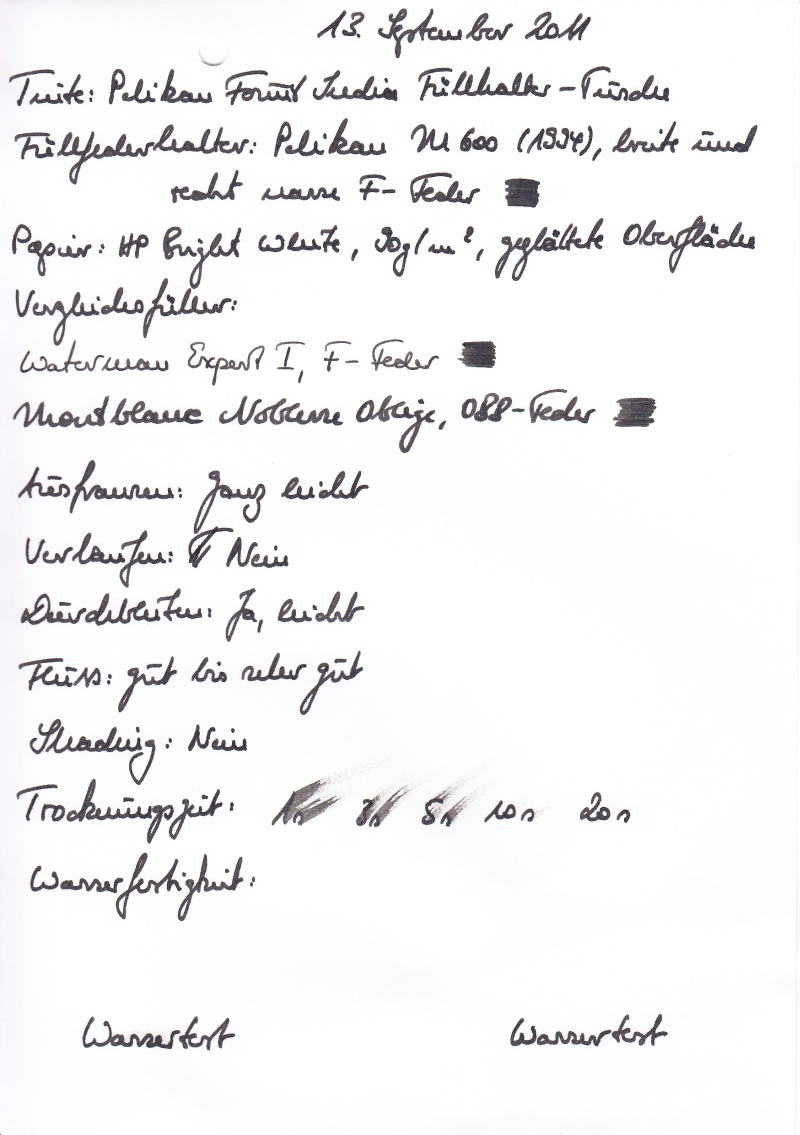 13. September 2011
Tinte: Pelikan Fount India Füllhalter-Tusche
Füllfederhalter: Pelikan M 600 (1994), breite und
recht nasse F-Feder
Papier: HP Bright White, 90g/m², geglättete Oberfläche
Vergleichsfüller:
Waterman Expert I, F-Feder
Montblanc Noblesse Oblige, OBB-Feder
Ausfransen: Ganz leicht
Verlaufen: Nein
Durchbluten: Ja, leicht
Fluss: gut bis sehr gut
Shading: Nein
Trocknungszeit: 1s 3s 5s 10s 20s
Wasserfestigkeit:
Wassertest Wassertest